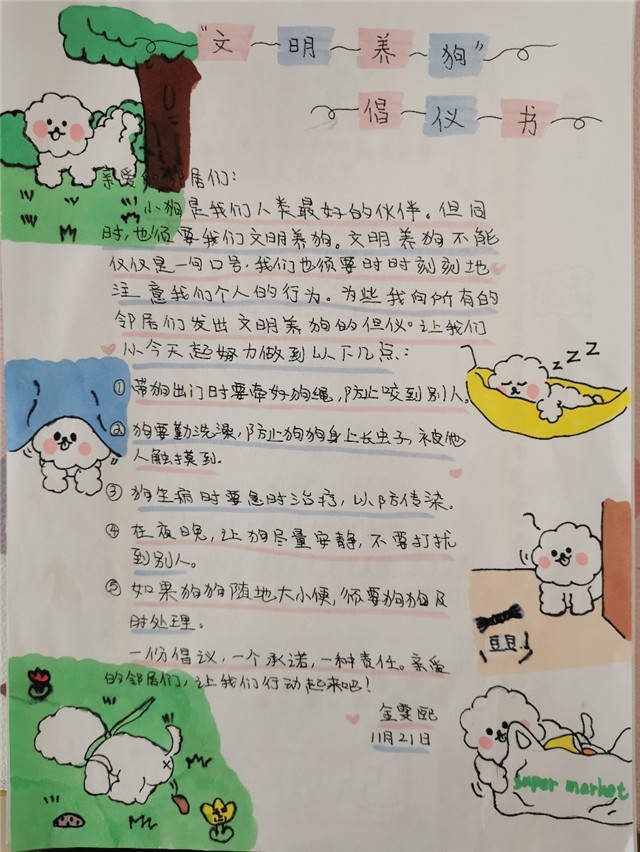 "文明养狗"
倡仪书
亲爱的邻居们：
小狗是我们人类最好的伙伴。但同
时,也须要我们文明养狗。文明养狗不能
仅仅是一句口号,我们也须要时时刻刻地
注意我们个人的行为。为些我向所有的
邻居们发出文明养狗的但仪。让我们
从今天起努力做到以下几点：
① 带狗出门时要牵好狗绳,防止咬到别人。
② 狗要勤洗澡,防止狗狗身上长虫子,被他
人触摸到.
③ 狗生病时要急时治疗,以防传染。
④ 在夜晚,让狗尽量安静,不要打扰
到别人。
⑤ 如果狗狗随地大小便,须要狗狗及
时处理。
一份倡议,一个承诺,一种责任。亲爱
的邻居们,让我们行动起来吧!
金雯熙
11月21日
zzz
豆豆
super market